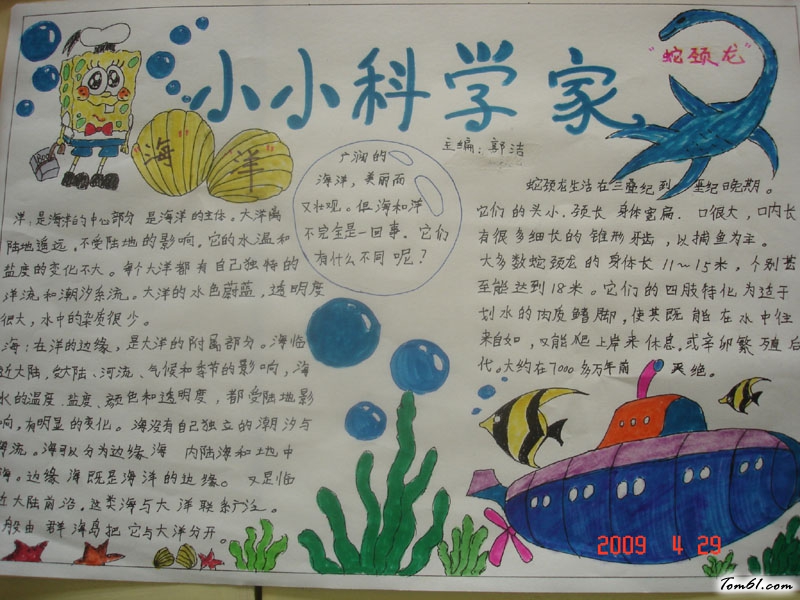 小小科学家
主编：郭洁
“蛇颈龙”
“海”“洋”
广阔的
海洋，美丽而
又壮观。但海和洋
不完全是一回事。它们
有什么不同呢？
洋：是海洋的中心部分 是海洋的主体。大洋离
陆地遥远，不受陆地的影响。它的水温和
盐度的变化不大。每个大洋都有自己独特的
洋流和潮汐系流。大洋的水色蔚蓝，透明度
很大，水中的杂质很少。
海：在洋的边缘，是大洋的附属部分。海临
近大陆，受大陆、河流、气候和季节的影响，海
水的温度、盐度、颜色和透明度，都受陆地影
响，有明显的变化。海没有自己独立的潮汐与
海流。海可以分为边缘海 内陆海和地中
海。边缘海既是海洋的边缘。又是临
近大陆前沿，这类海与大洋联系广泛。
般由群海岛把它与大洋分开。
蛇颈龙生活在三叠纪到 垩纪晚期。
它们的头小、颈长 身体宽扁、口很大，口内长
有很多细长的锥形牙齿，以捕鱼为主。
大多数蛇颈龙的身体长11～15米，个别甚
至能达到18米。它们的四肢特化为适于
划水的肉质鳍脚，使其既能在水中往
来自如，又能爬上岸来休息，或辛卵繁殖后
代。大约在7000多万年前 灭绝。
2009 4 29
Tom61.com